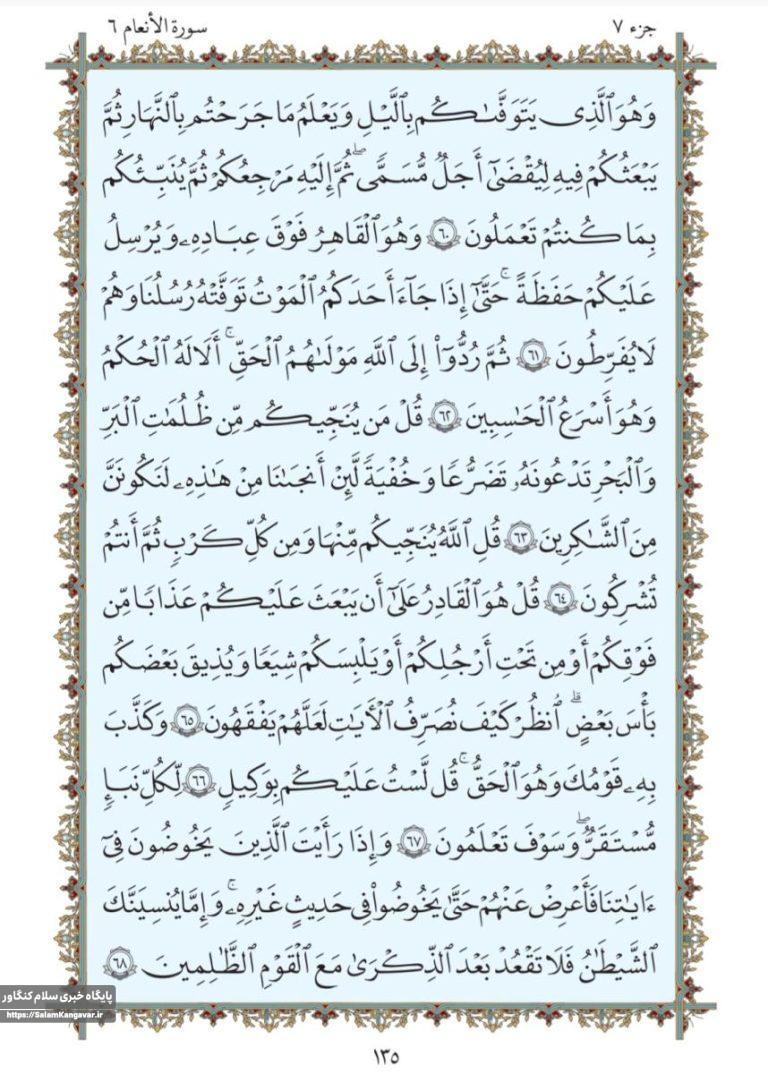 جزء ٧
سورة الأنعام ٦
وَهُوَ ٱلَّذِى يَتَوَفَّىٰكُم بِٱلَّيْلِ وَيَعْلَمُ مَا جَرَحْتُم بِٱلنَّهَارِ ثُمَّ
يَبْعَثُكُمْ فِيهِ لِيُقْضَىٰٓ أَجَلٌ مُّسَمًّى ۖ ثُمَّ إِلَيْهِ مَرْجِعُكُمْ ثُمَّ يُنَبِّئُكُم
بِمَا كُنتُمْ تَعْمَلُونَ ٦٠ وَهُوَ ٱلْقَاهِرُ فَوْقَ عِبَادِهِۦ وَيُرْسِلُ
عَلَيْكُمْ حَفَظَةً ۚ حَتَّىٰٓ إِذَا جَآءَ أَحَدَكُمُ ٱلْمَوْتُ تَوَفَّتْهُ رُسُلُنَا وَهُمْ
لَا يُفَرِّطُونَ ٦١ ثُمَّ رُدُّوٓا۟ إِلَى ٱللَّهِ مَوْلَىٰهُمُ ٱلْحَقِّ ۚ أَلَا لَهُ ٱلْحُكْمُ
وَهُوَ أَسْرَعُ ٱلْحَـٰسِبِينَ ٦٢ قُلْ مَن يُنَجِّيكُم مِّن ظُلُمَـٰتِ ٱلْبَرِّ
وَٱلْبَحْرِ تَدْعُونَهُۥ تَضَرُّعًا وَخُفْيَةً لَّئِنْ أَنجَىٰنَا مِنْ هَـٰذِهِۦ لَنَكُونَنَّ
مِنَ ٱلشَّـٰكِرِينَ ٦٣ قُلِ ٱللَّهُ يُنَجِّيكُم مِّنْهَا وَمِن كُلِّ كَرْبٍ ثُمَّ أَنتُمْ
تُشْرِكُونَ ٦٤ قُلْ هُوَ ٱلْقَادِرُ عَلَىٰٓ أَن يَبْعَثَ عَلَيْكُمْ عَذَابًا مِّن
فَوْقِكُمْ أَوْ مِن تَحْتِ أَرْجُلِكُمْ أَوْ يَلْبِسَكُمْ شِيَعًا وَيُذِيقَ بَعْضَكُم
بَأْسَ بَعْضٍ ۗ ٱنظُرْ كَيْفَ نُصَرِّفُ ٱلْـَٔايَـٰتِ لَعَلَّهُمْ يَفْقَهُونَ ٦٥ وَكَذَّبَ
بِهِۦ قَوْمُكَ وَهُوَ ٱلْحَقُّ ۚ قُل لَّسْتُ عَلَيْكُم بِوَكِيلٍ ٦٦ لِّكُلِّ نَبَإٍ
مُّسْتَقَرٌّ ۖ وَسَوْفَ تَعْلَمُونَ ٦٧ وَإِذَا رَأَيْتَ ٱلَّذِينَ يَخُوضُونَ فِىٓ
ءَايَـٰتِنَا فَأَعْرِضْ عَنْهُمْ حَتَّىٰ يَخُوضُوا۟ فِى حَدِيثٍ غَيْرِهِۦ ۚ وَإِمَّا يُنسِيَنَّكَ
ٱلشَّيْطَـٰنُ فَلَا تَقْعُدْ بَعْدَ ٱلذِّكْرَىٰ مَعَ ٱلْقَوْمِ ٱلظَّـٰلِمِينَ ٦٨
پایگاه خبری سلام کنگاور
https://SalamKangavar.ir
١٣٥